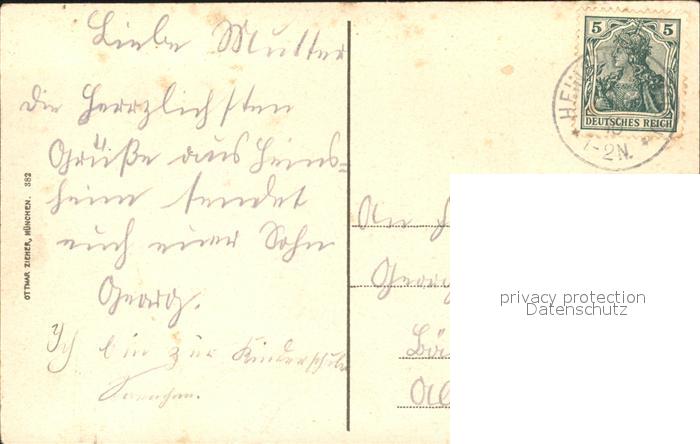 Liebe Mutter
die Herrzlichsten
Grüße aus Heins=
heim sendet
euch euer Sohn
Georg.
Ich bin zur Kinderschule
OTTMAR ZIEHER, MÜNCHEN. 382
5 5
DEUTSCHES REICH
HEIN
7-2N.
An
Georg
privacy protection
Datenschutz
Bä